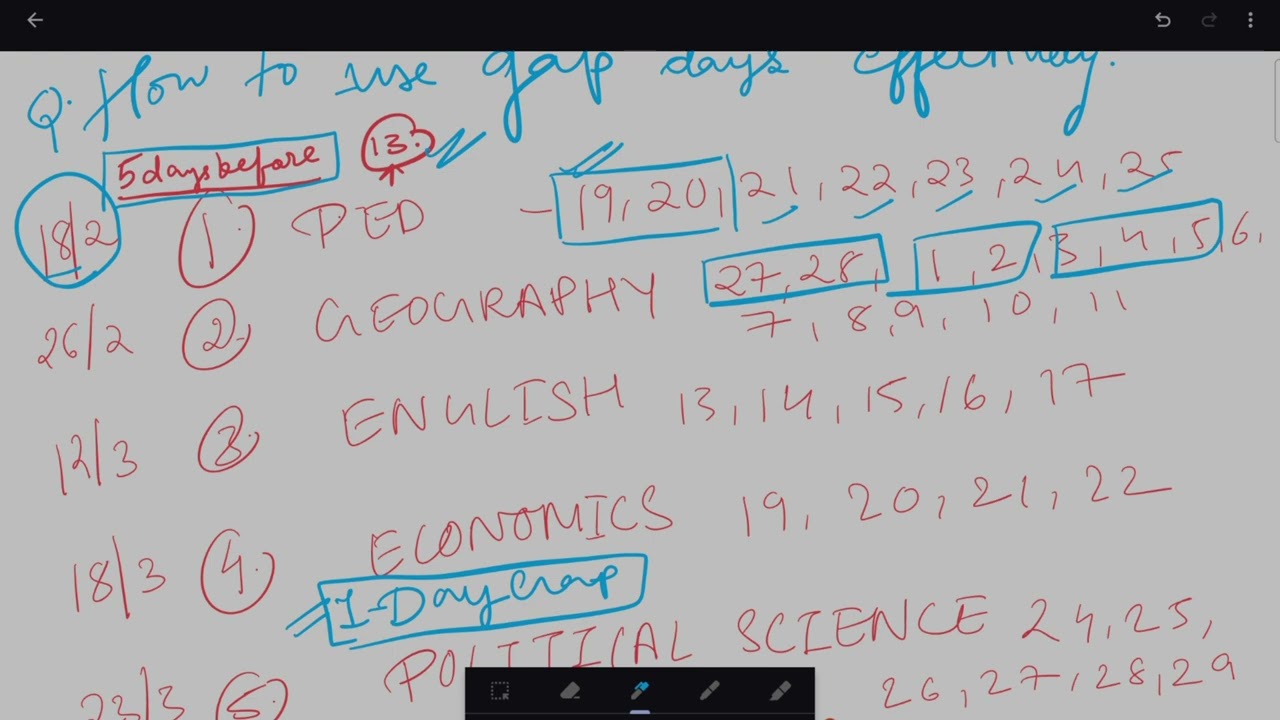 Q. How to use gap days effectively.
5 days before 13.
18/2 1. PED - 19, 20, 21, 22, 23, 24, 25
26/2 2. GEOGRAPHY 27, 28, 1, 2, 3, 4, 5, 6,
7, 8, 9, 10, 11
12/3 3. ENGLISH 13, 14, 15, 16, 17
18/3 4. ECONOMICS 19, 20, 21, 22
1-Day Gap
23/3 5. POLITICAL SCIENCE 24, 25,
26, 27, 28, 29